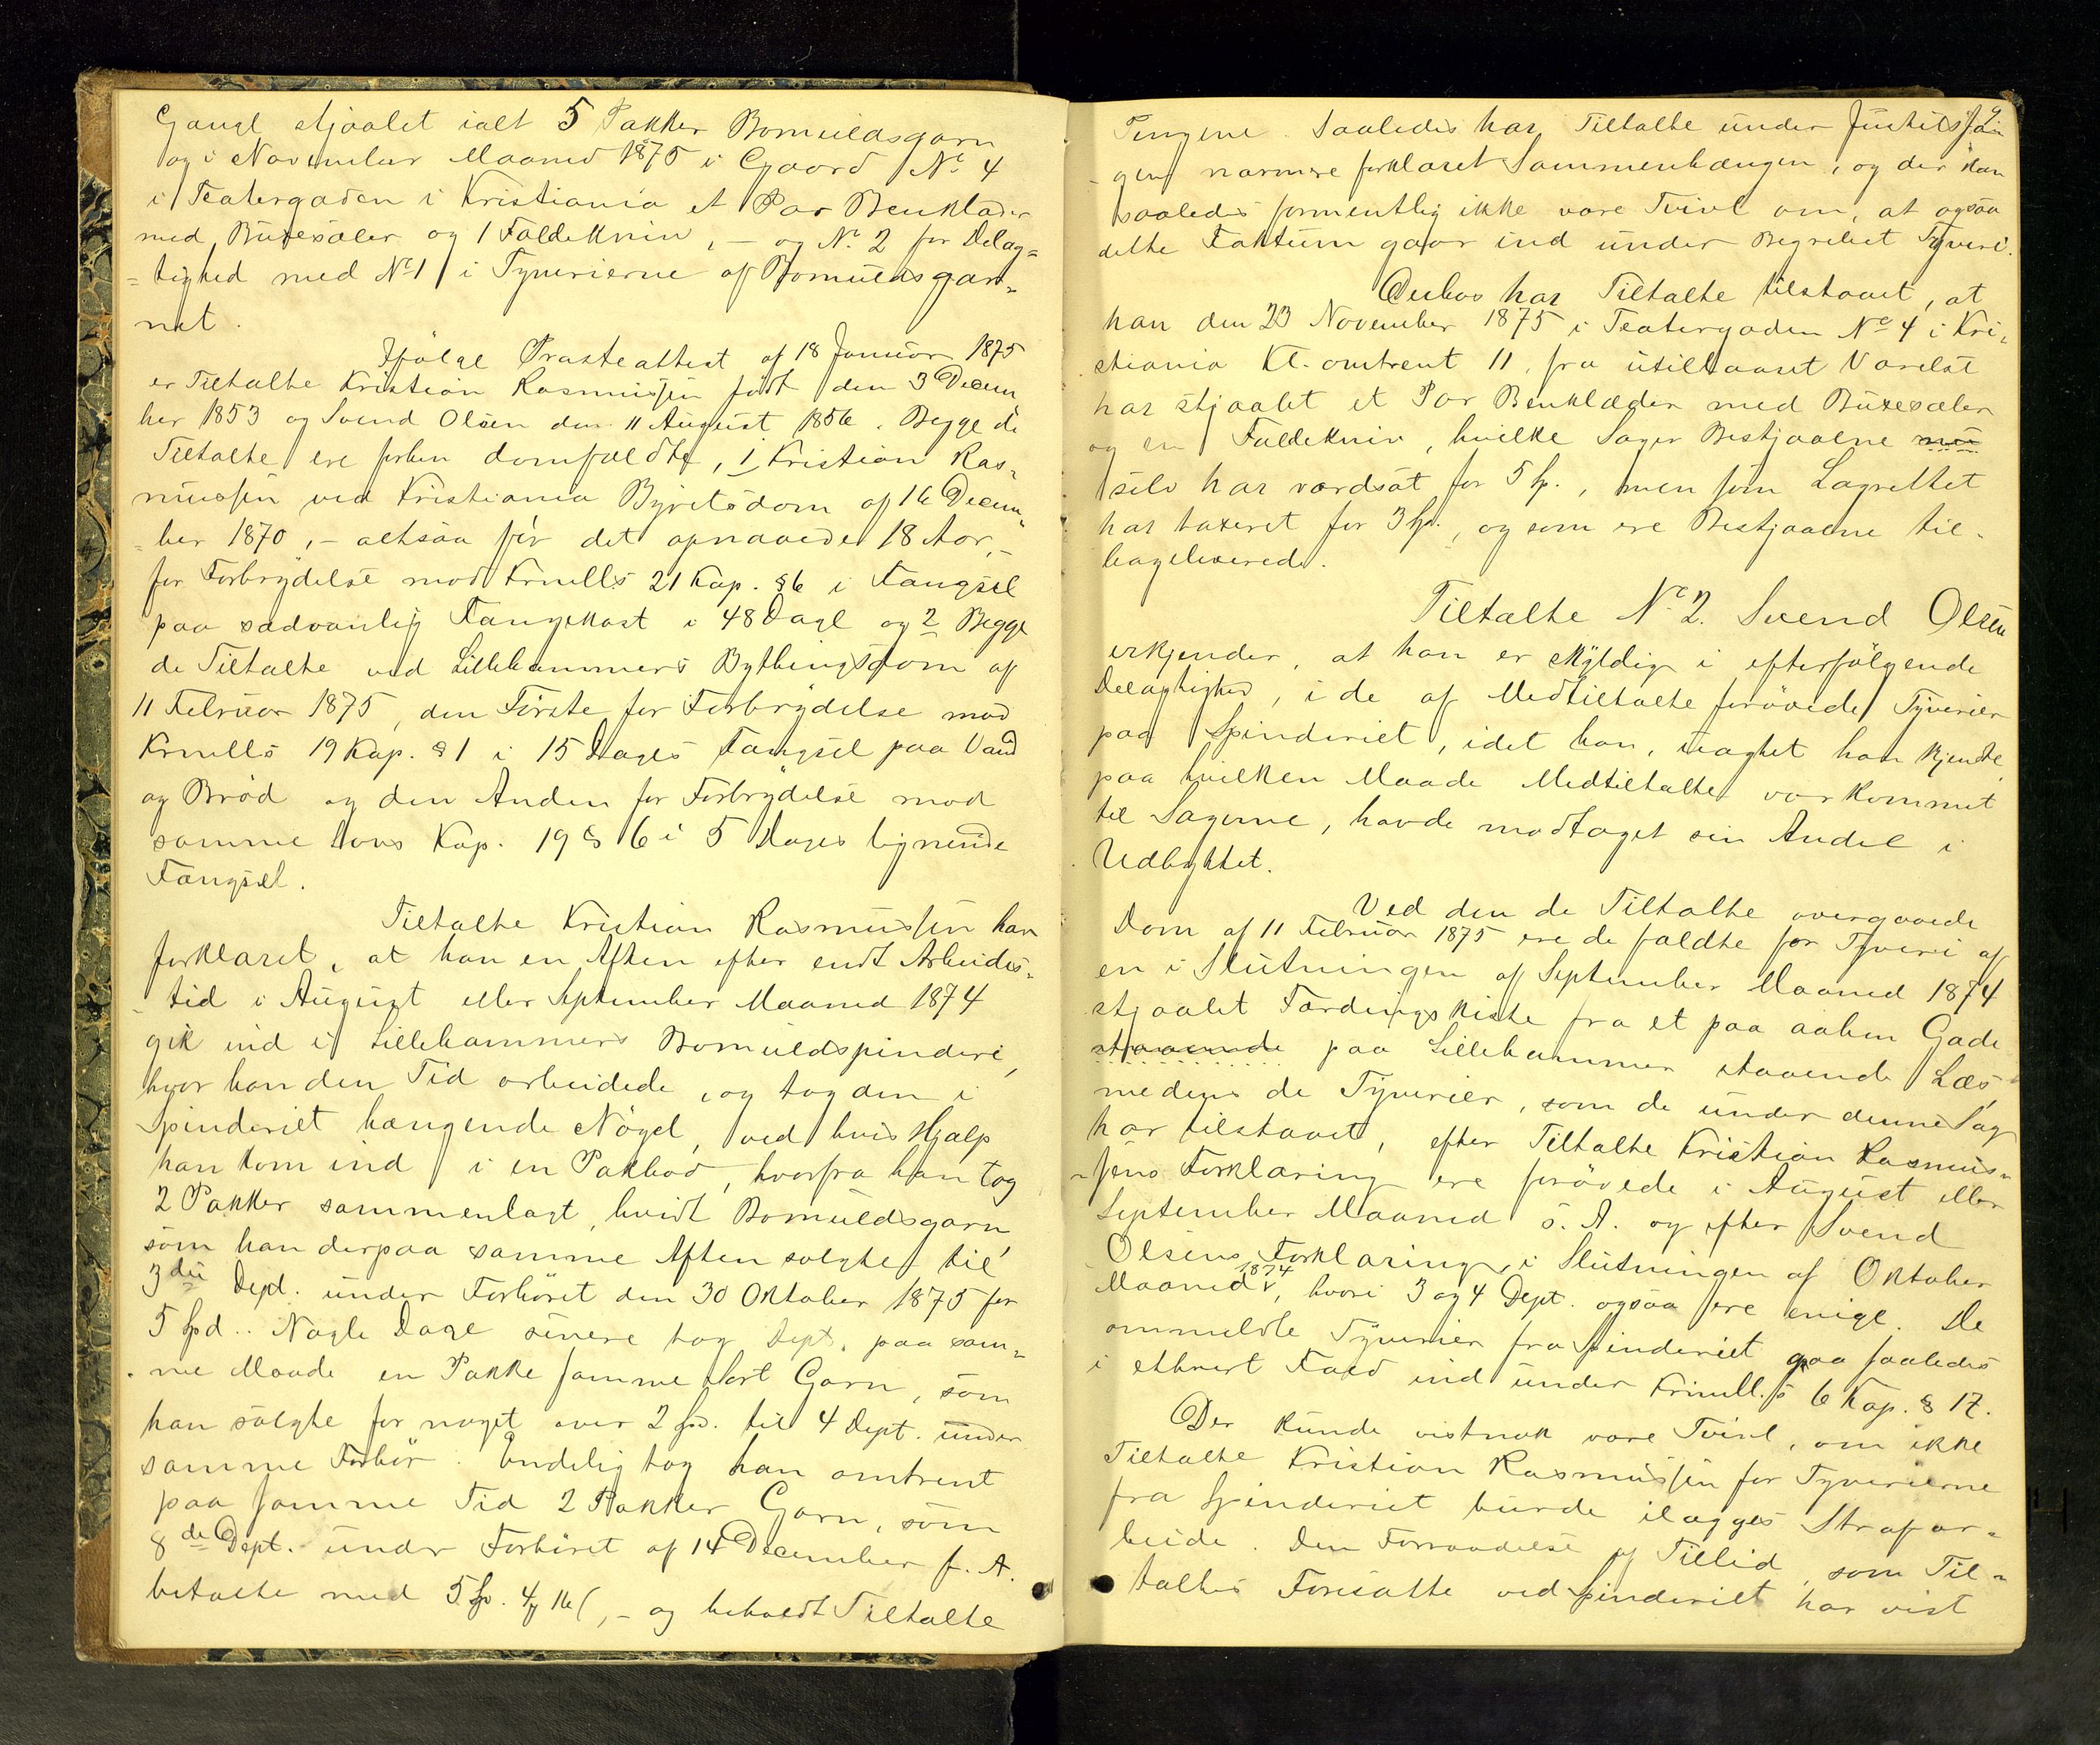 Gange stjaalet ialt 5 Pakker Bomuldsgarn
og i November Maaned 1875 i Gaard No 4
i Teatergaden i Kristiania et Par Benklæder
med Buxesæler og 1 Foldekniv, – og No 2 for Delag=
=tighed med No 1 i Tyverierne af Bomuldsgar=
net.
Ifølge Præsteattest af 18 Januar 1875
er Tiltalte Kristian Rasmussen født den 3 Decem
ber 1853 og Svend Olsen den 11 August 1856. Begge de
Tiltalte ere forhen domfældte, 1 Kristian Ras=
mussen ved Kristiania Byretsdom af 16 Decem=
=ber 1870, – altsaa før det opnaaede 18 Aar, –
for Forbrydelse mod Krmlls 21 Kap. § 6 i Fængsel
paa sædvanlig Fangekost i 48 Dage og 2 Begge
de Tiltalte ved Lillehammers Bythingsdom af
11 Februar 1875, den Første for Forbrydelse mod
Krmlls 19 Kap. § 1 i 15 Dages Fængsel paa Vand
og Brød og den Anden for Forbrydelse mod
samme Lovs Kap. 19 § 6 i 5 Dages lignende
Fængsel.
Tiltalte Kristian Rasmussen har
forklaret, at han en Aften efter endt Arbeids=
tid i August eller September Maaned 1874
gik ind i Lillehammers Bomuldspinderi,
hvor han den Tid arbeidede, og tog den i
Spinderiet hængende Nøgel, ved hvis Hjælp
han kom ind i en Pakbod, hvorfra han tog
2 Pakker sammenlagt, hvidt Bomuldsgarn,
som han derpaa samme Aften solgte til
3die Dept. under Forhøret den 30 Oktober 1875 for
5 Spd.. Nogle Dage senere tog Dept. paa sam=
me Maade en Pakke samme Sort Garn, som
han solgte for noget over 2 Spd. til 4 Dept. under
samme Forhør. Endelig tog han omtrent
paa samme Tid 2 Pakker Garn, som
8de Dept. under Forhøret af 14 December f. A.
betalte med 5 Sp. 16 –og beholdt Tiltalte
9
Pengene. Saaledes har Tiltalte under Justitsfor
=gen nærmere forklaret Sammenhængen, og der kan
saaledes formentlig ikke være Tvivl om, at ogsaa
dette Faktum gaar ind under Begrebet Tyveri.
Derhos har Tiltalte tilstaaet, at
han den 23 November 1875 i Teatergaden No 4 i Kri=
stiania Kl. omtrent 11 fra uillaaset Værelse
har stjaalet et Par Benklæder med Buxesæler
og en Foldekniv, hvilke Sager Bestjaalne nu
selv har værdsat for 5 Sp., men som Lagrettet
har taxeret for 3 Spd., og som ere Bestjaalne til=
bageleverede.
Tiltalte No 2. Svend Olsen
erkjender, at han er skyldig i efterfølgende
Delagtighed, i de af Medtiltalte forøvede Tyverier
paa Spinderiet, idet han, uagtet han kjendte,
paa hvilken Maade Medtiltalte var kommet
til Sagerne, havde modtaget sin Andel i
Udbyttet.
Ved den de Tiltalte overgaaede
Dom af 11 Februar 1875 ere de fældte for Tyveri af
en i Slutningen af September Maaned 1874
stjaalet Færdingskiste fra et paa aaben Gade
staaende paa Lillehammer staaende Læs,
medens de Tyverier, som de under denne Sag
har tilstaaet, efter Tiltalte Kristian Rasmus=
=sens Forklaring ere forøvede i August eller
September Maaned s. A. og efter Svend
Olsens Forklaring i Slutningen af Oktober
Maaned 1874, hvori 3 og 4 Dept. ogsaa ere enige. De
ommeldte Tyverier fra Spinderiet gaa saaledes
i ethvert Fald ind under Krimll.s 6 Kap. § 17.
Der kunde vistnok være Tvivl, om ikke
Tiltalte Kristian Rasmussen for Tyverierne
fra Spinderiet burde ilægges Strafar=
beide. Den Forraadelse af Tillid, som Til=
taltes Foresatte ved Spinderiet har vist